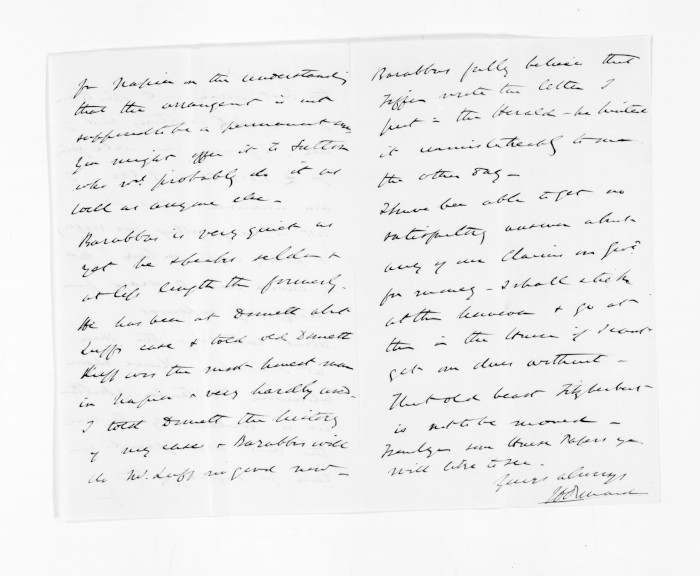 for Napier on the understanding
that the arrangent is not
supposed to be a permanent one
You might offer it to Sutton
who wd. probably do it as
well as anyone else -
Barabbas is very quiet as
yet he speaks seldom &
at less length than formerly.
He has been at Domett about
Luffs case & told old Domett
Luff was the most honest man
in Napier & very hardly used.
I told Domett the history
of my case & Barabbas will
do Mr. Luff no good now -
Barabbas fully believes that
Tiffen wrote the letter I
put in the Herald - he hinted
it unmistakeably to me
the other day -
I have been able to get no
satisfactory answer about
any of our Claims on Govt.
for money - I shall stick
at them however & go at
them in the House if I cant
get our dues without -
That old beast Fitzherbert
is not to be moved -
I send you some House Papers you
will like to see.
Yours always
JDOrmond